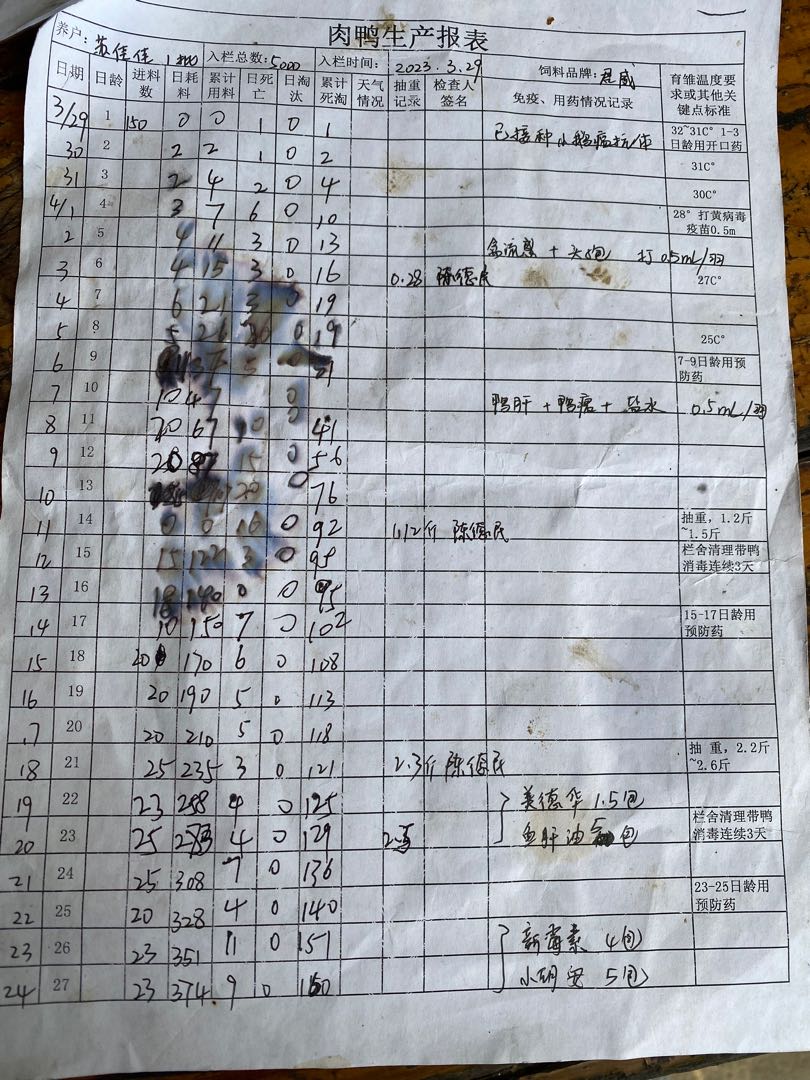 肉鸭生产报表
养户: 苏佳佳 1批 入栏总数: 5000 入栏时间: 2023.3.29 饲料品牌: 威
日期 日龄 进料数 日耗料 累计用料 日死亡 日淘汰 累计死淘 天气情况 抽重记录 检查人签名 免疫、用药情况记录 育雏温度要求或其他关键点标准
3/29 1 150 0 0 1 0 1 已接种小鹅瘟抗体 32~31C° 1-3日龄用开口药
30 2 2 2 1 0 2 31C°
31 3 2 4 2 0 4 30C°
4/1 4 3 7 6 0 10 28° 打黄病毒疫苗0.5m
2 5 4 11 3 0 13 禽流感 + 头孢 打 0.5mL/羽
3 6 4 15 3 0 16 0.28 陈德民 27C°
4 7 6 21 3 0 19
5 8 5 26 0 19 25C°
6 9 37 5 0 7-9日龄用预防药
7 10 10 47 0 鸭肝 + 鸭瘟 + 盐水 0.5mL/羽
8 11 20 67 10 0 41
9 12 20 87 15 0 56
10 13 20 0 76
11 14 0 0 16 0 92 1.12斤 陈德民 抽重，1.2斤~1.5斤
12 15 15 122 3 0 95 栏舍清理带鸭消毒连续3天
13 16 18 140 0 0 95
14 17 10 150 7 0 102 15-17日龄用预防药
15 18 20 170 6 0 108
16 19 20 190 5 0 113
17 20 20 210 5 0 118
18 21 25 235 3 0 121 2.3斤 陈德民 抽重，2.2斤~2.6斤
19 22 23 258 4 0 125 美德华 1.5包
20 23 25 283 4 0 129 鱼肝油 包 栏舍清理带鸭消毒连续3天
21 24 25 308 7 0 136
22 25 20 328 4 0 140 23-25日龄用预防药
23 26 23 351 11 0 151 新霉素 4包
24 27 23 374 9 0 160 5包